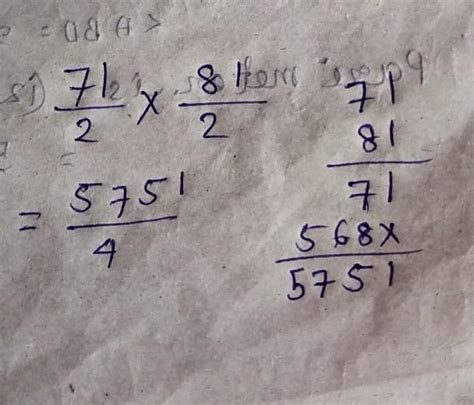 71/2 × 81/2
= 5751/4
71
81
71
568x
5751